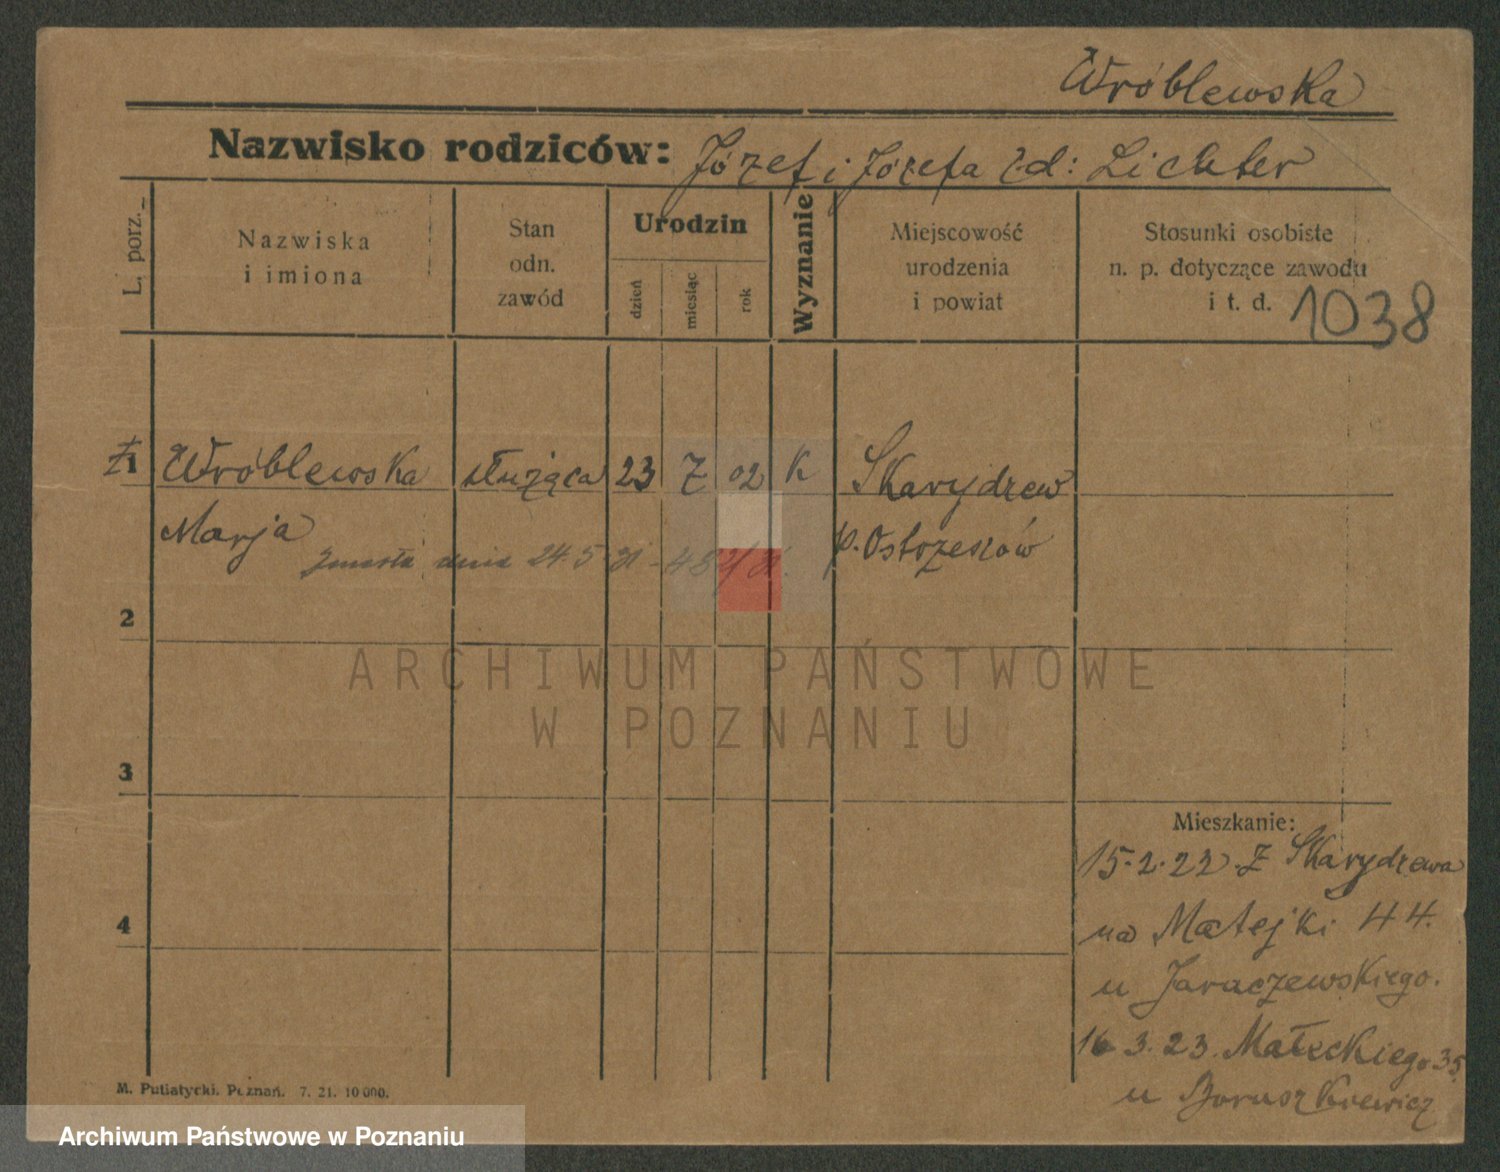 Wróblewska
Nazwisko rodziców: Józef i Józefa zd: Lichter
L. porz.
Nazwiska
i imiona
Stan
odn.
zawód
Urodzin
dzień
miesiąc
rok
Wyznanie
Miejscowość
urodzenia
i powiat
Stosunki osobiste
n. p. dotyczące zawodu
i t. d.
1038
1 Wróblewska służąca 23 7 02 K Skarydzew
Marja p. Ostrzeszów
zmarła dnia 24.5.31
2
ARCHIWUM PAŃSTWOWE
W POZNANIU
3
Mieszkanie:
15.2.22. z Skarydzewa
4
na Matejki 44.
u Jaraczewskiego.
16 3.23. Małeckiego 35
u
M. Putiatycki. Poznań. 7. 21. 10 000.
Archiwum Państwowe w Poznaniu